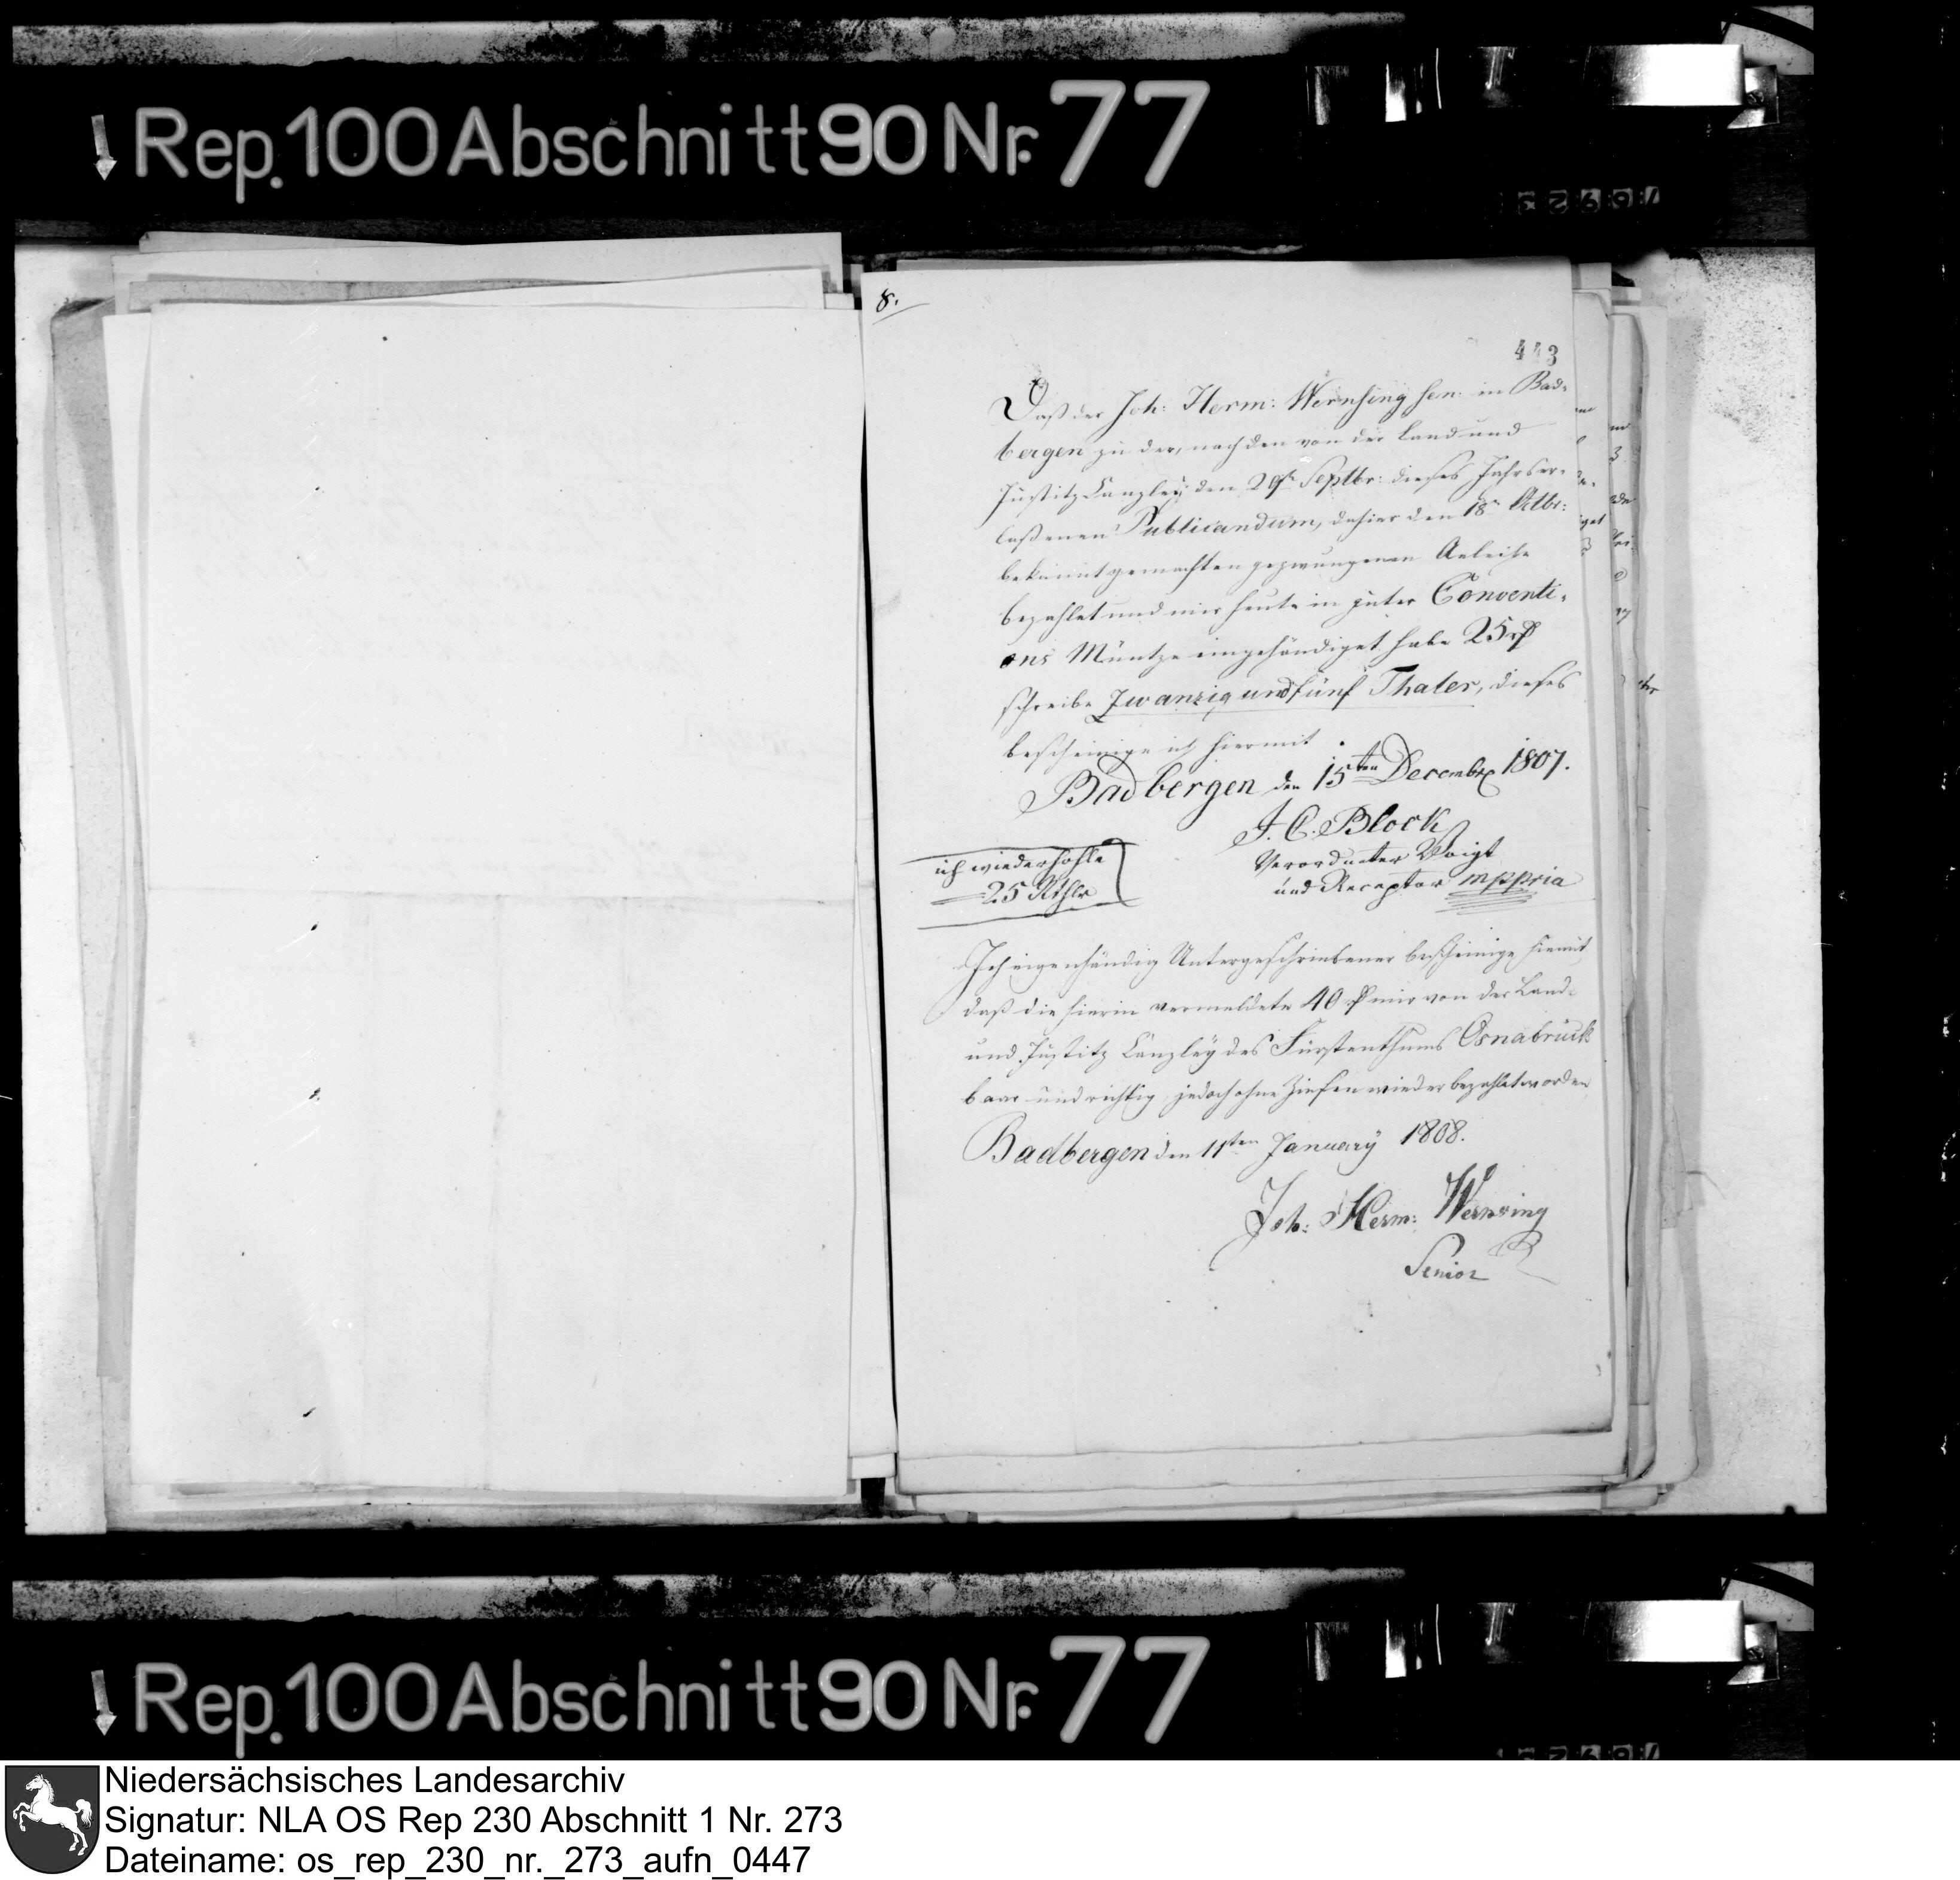 Rep. 100 Abschnitt 90 Nr. 77
8.
443
Daß der Joh: Herm: Wernsing sen. in Bad-
bergen zu der, nach den von der Land und
Justitz Canzley den 29t Septbr: dieses Jahrs er-
laßenen Publicandum, dahier den 18n
bekannt gemachten gezwungenen Anleihe
bezahlet und mir heute in guter Conventi-
ons Müntze eingehändiget habe 25 rthl
schreibe Zwanzig und fünf Thaler, dieses
bescheinige ich hiermit.
Badbergen den 15ten Decembr 1807.
J. C. Block
Verordneter Voigt
und Receptor mppria
ich wiederhohle
25 Rthlr
Ich eigenhändig Untergeschriebener bescheinige hiemit
daß die hierin vermeldete 40 rthl mir von der Land-
und Justitz Canzley des Fürstenthums Osnabrück
baar und richtig jedoch ohne Zinsen wieder bezahlet worden
Badbergen den 11ten January 1808.
Joh: Herm: Wernsing
Senior
Rep. 100 Abschnitt 90 Nr. 77
Niedersächsisches Landesarchiv
Signatur: NLA OS Rep 230 Abschnitt 1 Nr. 273
Dateiname: os_rep_230_nr._273_aufn_0447